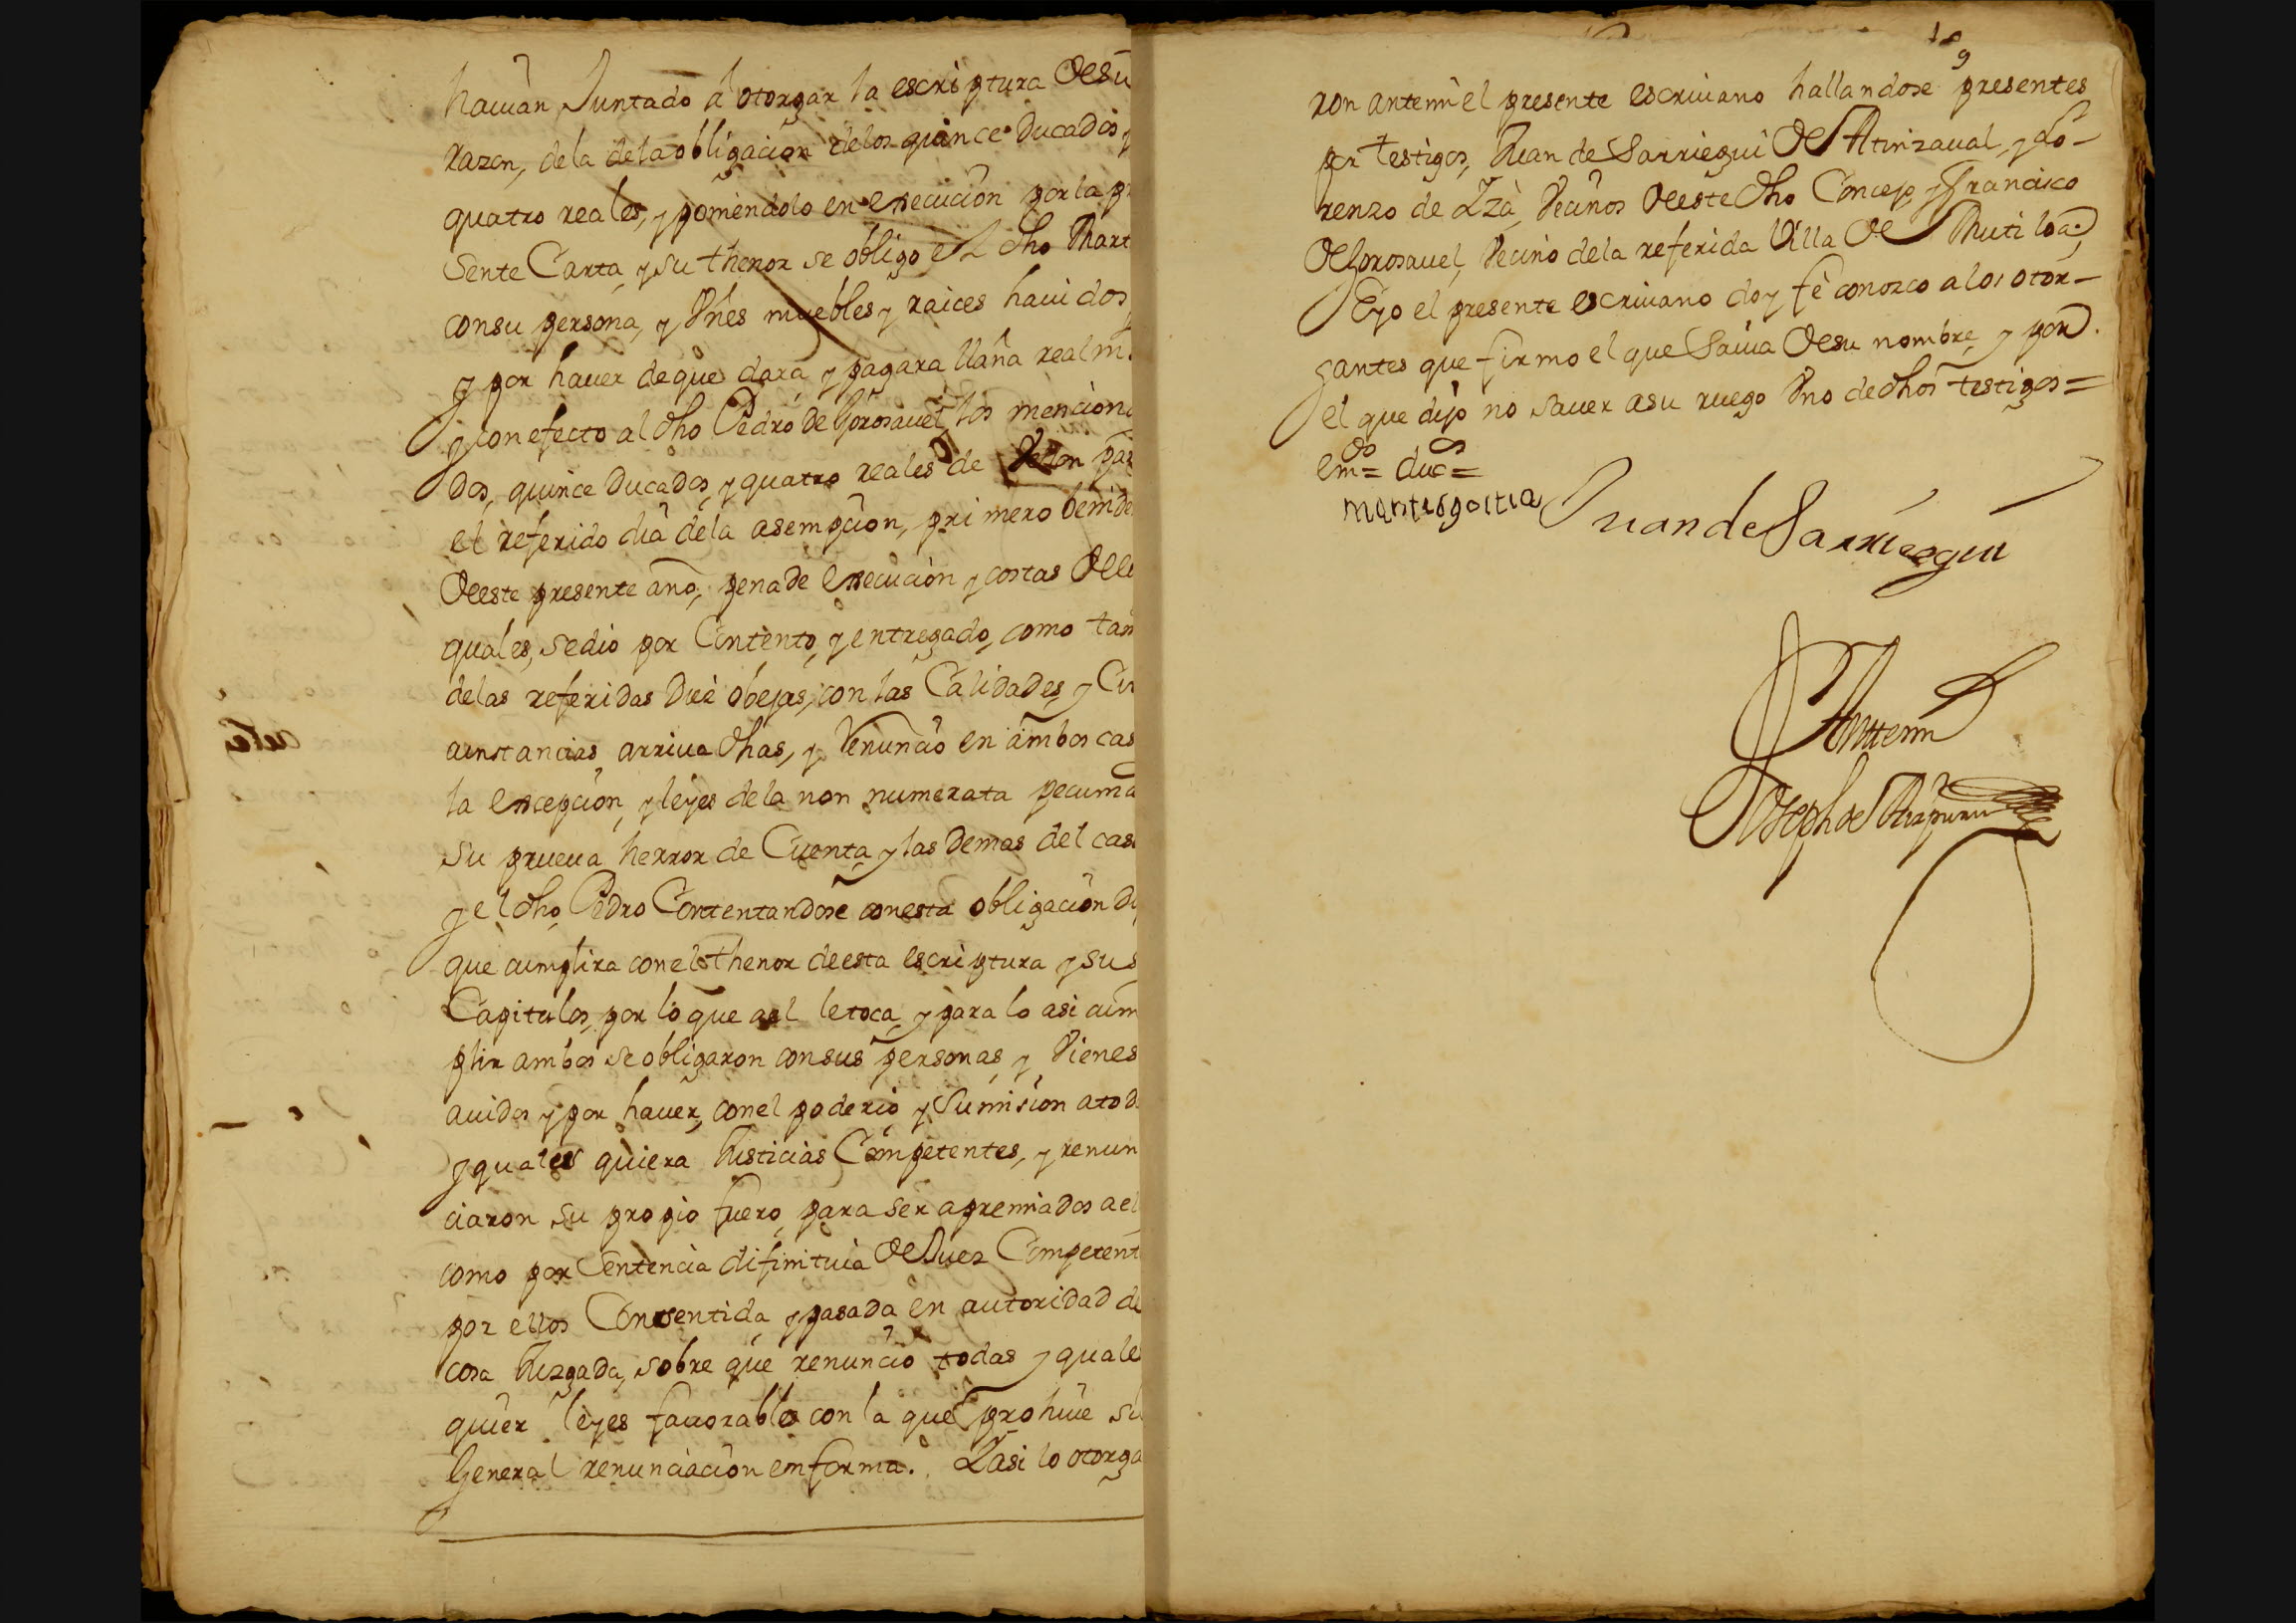 havian Juntado à otorgar la escriptura de su
razon, de la de la obligacion de los quince Ducados, y
quatro reales, y poniendolo en execucion por la pre
sente Carta, y su thenor se obligo el dho Mart
con su persona, y Vnes muebles y raices havidos
y por haver de que dara, y pagara llana realm.
y con efecto al dho Pedro de Gorosavel, los menciona
dos, quince Ducados, y quatro reales de vellon para
el referido dia de la asempcion, primero benide
de este presente año, pena de execucion y costas de lo
quales, se dio por Contento, y entregado, como tam
de las referidas Diez obejas, con las Calidades, y Cir
cunstancias arriva dhas, y Renuncio en ambos cas
la excepcion, y leyes de la non numerata pecunia
su prueva herror de Cuenta, y las Demas del cas
y el dho Pedro Contentandose con esta obligacion Di
que cumplira con el thenor de esta escriptura y sus
Capitulos, por lo que a el le toca, y para lo asi cum
plir ambos se obligaron con sus personas, y Vienes
avidos y por haver, con el poderio, y Sumision a tod
y quales quiera Justicias Competentes, y renun
ciaron su propio fuero, para ser apremiados a el
como por Sentencia difinitiva de Juez Competent
por ellos Consentida, y pasada en autoridad de
cosa Juzgada, sobre que renuncio todas y quales
quier leyes favorables con la que prohive su
General renunciacion en forma. Y asi lo otorga
189
ron ante mi el presente escrivano hallandose presentes
por testigos, Juan de Sarriegui de Atinzaval, y Lo-
renzo de Yza, Vecinos de este dho Concejo, y Francisco
de Gorosavel, Vecino de la referida Villa de Mutiloa,
E yo el presente escrivano doy fe conozco a los otor-
gantes que firmo el que Savia de su nombre, y por
el que dijo no saver a su ruego Vno de dhos testigos =
em.dos = duc.s =
Juan de Sarriegui
Antemi
Joseph de Aizpuru